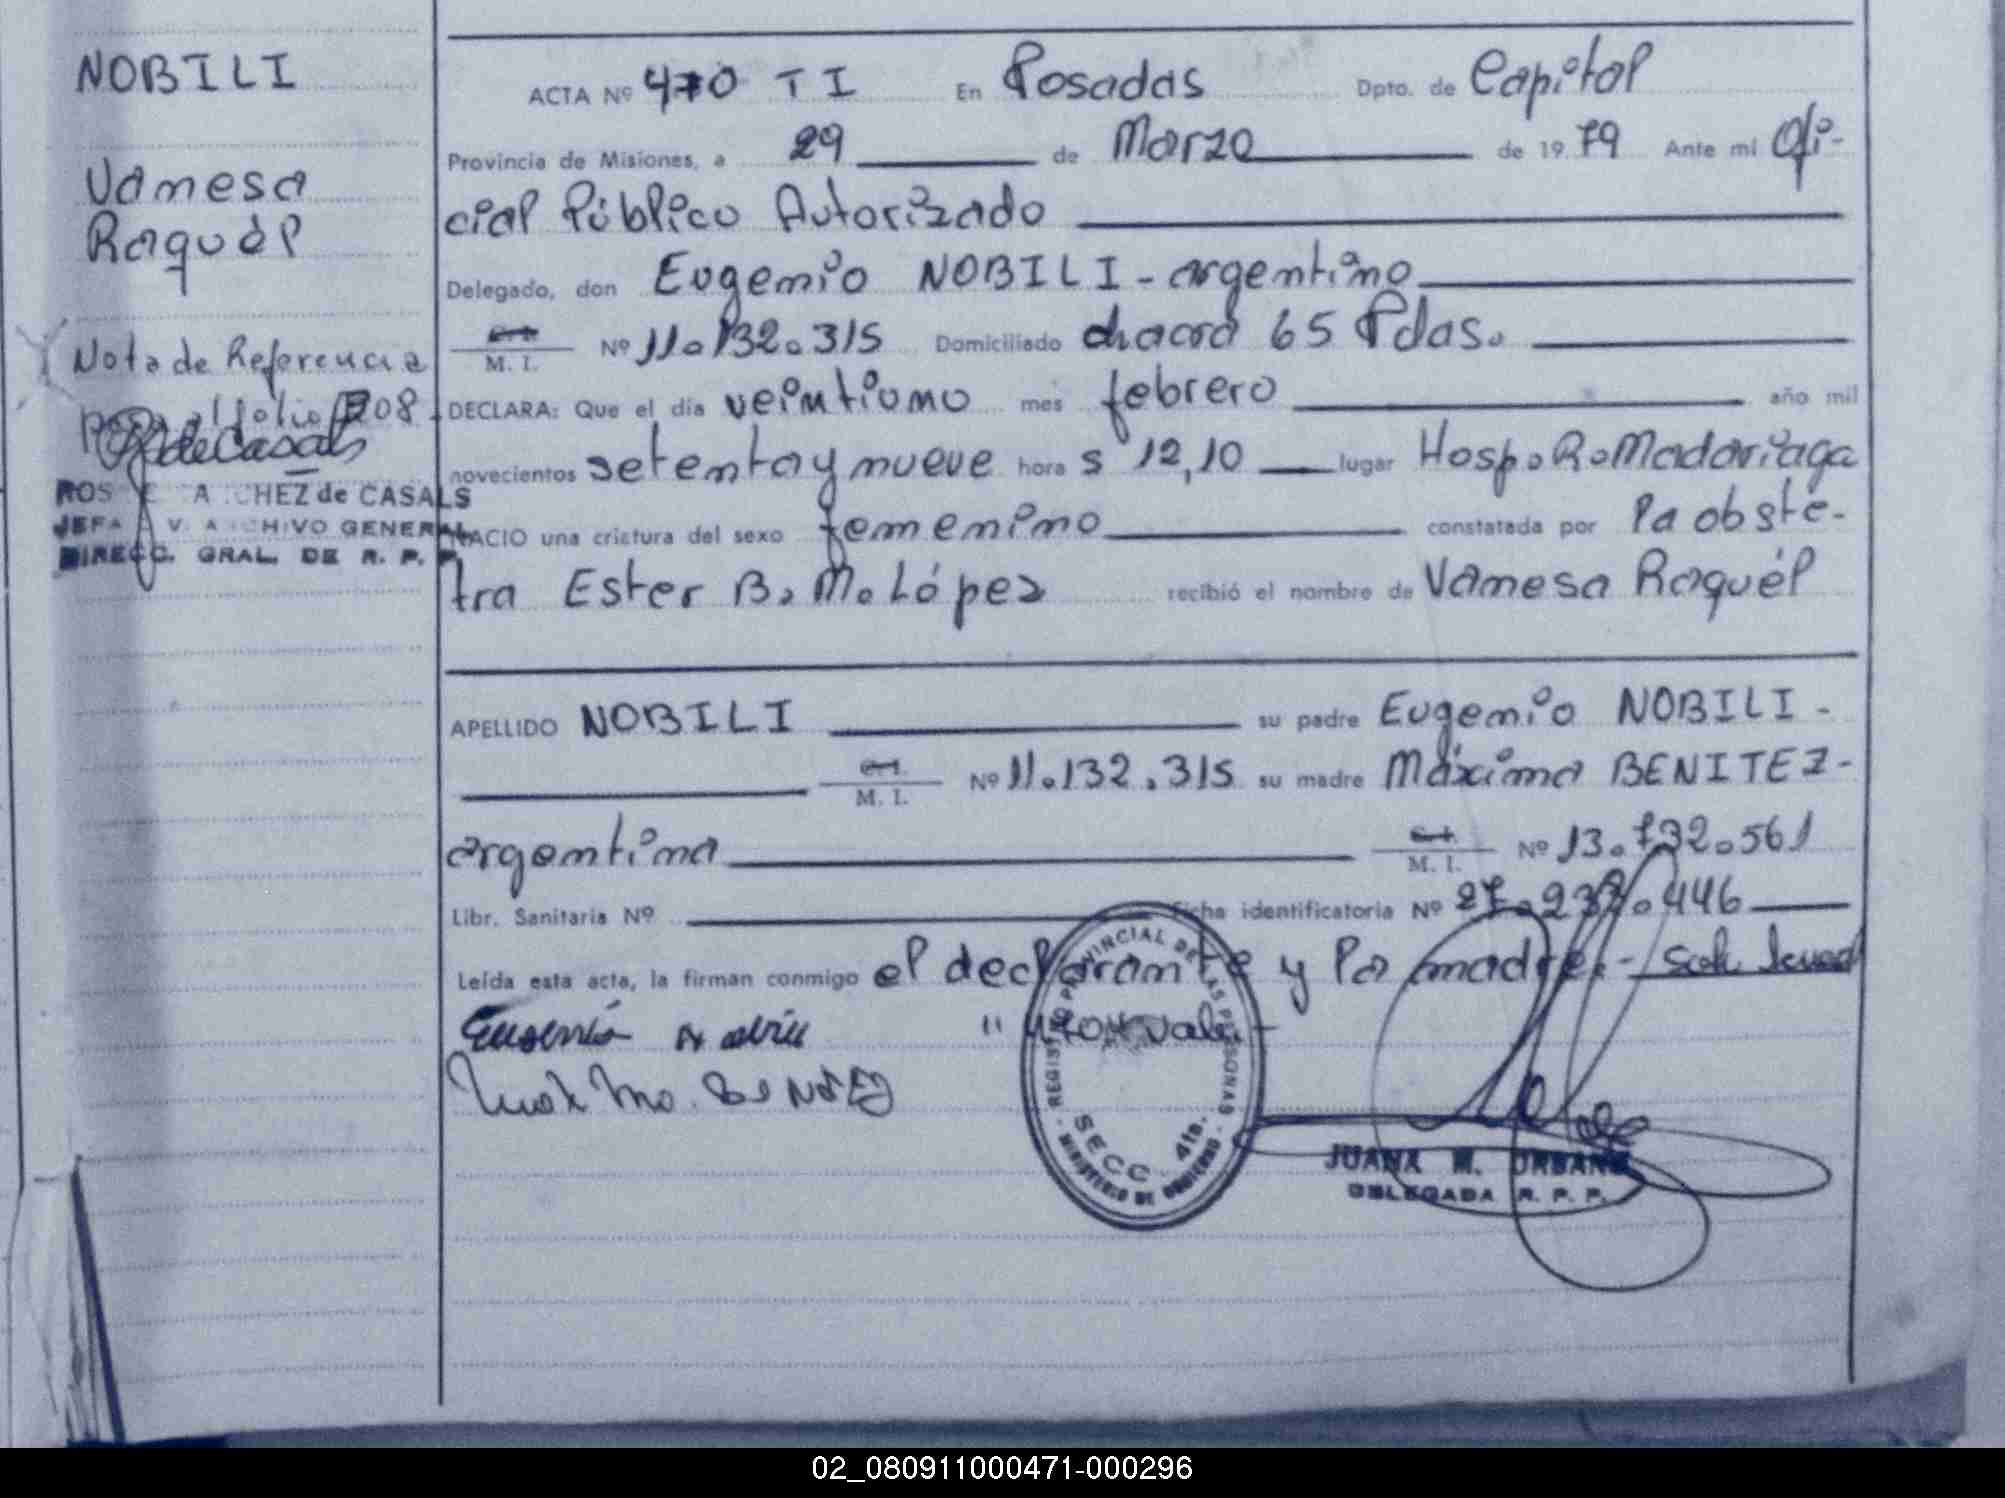 NOBILI
Vanesa
Raquél
Nota de Referencia
folio 208
de Casals
CHEZ de CASALS
JEFA V. A CHIVO GENERAL
DIRECC. GRAL. DE R. P. P.
ACTA Nº 470 T I En Posadas Dpto. de Capital
Provincia de Misiones, a 29 de Marzo de 1979 Ante mi Ofi-
cial Público Autorizado
Delegado, don Eugenio NOBILI - argentino
M. I. Nº 11.132.315 Domiciliado chacra 65 Pdas.
DECLARA: Que el día veintiuno mes febrero año mil
novecientos setenta y nueve hora s 12,10 lugar Hosp. R. Madariaga
NACIO una criatura del sexo femenino constatada por la obste-
tra Ester B. M. López recibió el nombre de Vanesa Raquél
APELLIDO NOBILI su padre Eugenio NOBILI -
M. I. Nº 11.132.315 su madre Máxima BENITEZ -
argentina M. I. Nº 13.732.561
Libr. Sanitaria Nº Ficha identificatoria Nº 27.237.446
Leída esta acta, la firman conmigo el declarante y la madre.-
Eugenio Nobili "470" vale -
Maxima Benitez
REGISTRO PROVINCIAL DE LAS PERSONAS
SECC. 4ta.
MINISTERIO DE GOBIERNO
JUANA M. URBANO
DELEGADA R. P. P.
02_080911000471-000296